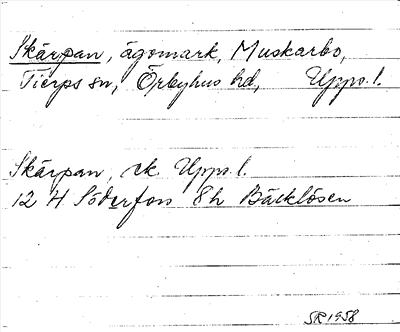 Skärpan, ägomark, Muskarbo,
Tierps sn, Örbyhus hd, Upps. l.
Skärpan, ek. Upps. l.
12 H Söderfors 8h Bäcklösen
SR 1958